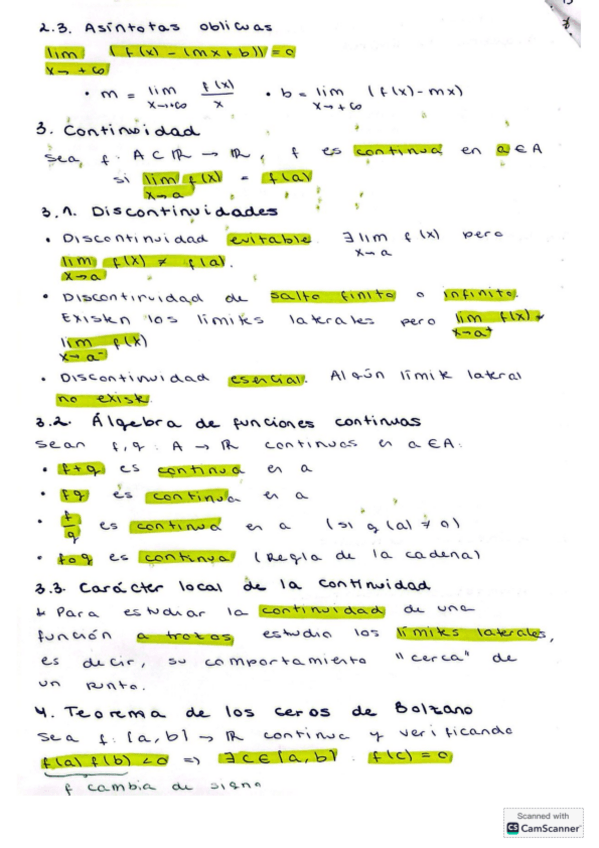 2.3. Asíntotas oblicuas
lim (f(x) - (mx + b)) = 0
x→+∞
• m = lim f(x)/x • b = lim (f(x) - mx)
x→+∞ x→+∞
3. Continuidad
Sea, f: A ⊂ ℝ → ℝ, f es continua en a ∈ A
si lim f(x) = f(a)
x→a
3.1. Discontinuidades
• Discontinuidad evitable. ∃ lim f(x) pero
x→a
lim f(x) ≠ f(a).
x→a
• Discontinuidad de salto finito o infinito.
Existen los límites laterales pero lim f(x) ≠
x→a⁺
lim f(x)
x→a⁻
• Discontinuidad esencial. Algún límite lateral
no existe.
3.2. Álgebra de funciones continuas
Sean f, g: A → ℝ continuas en a ∈ A:
• f+g es continua en a
• fg es continua en a
• f/g es continua en a (si g(a) ≠ 0)
• f∘g es continua (Regla de la cadena)
3.3. Carácter local de la continuidad
↳ Para estudiar la continuidad de una
función a trozos, estudio los límites laterales,
es decir, su comportamiento "cerca" de
un punto.
4. Teorema de los ceros de Bolzano
Sea f: [a, b] → ℝ continua y verificando
f(a) f(b) < 0 => ∃ c ∈ [a, b] : f(c) = 0
f cambia de signo
Scanned with
CS CamScanner